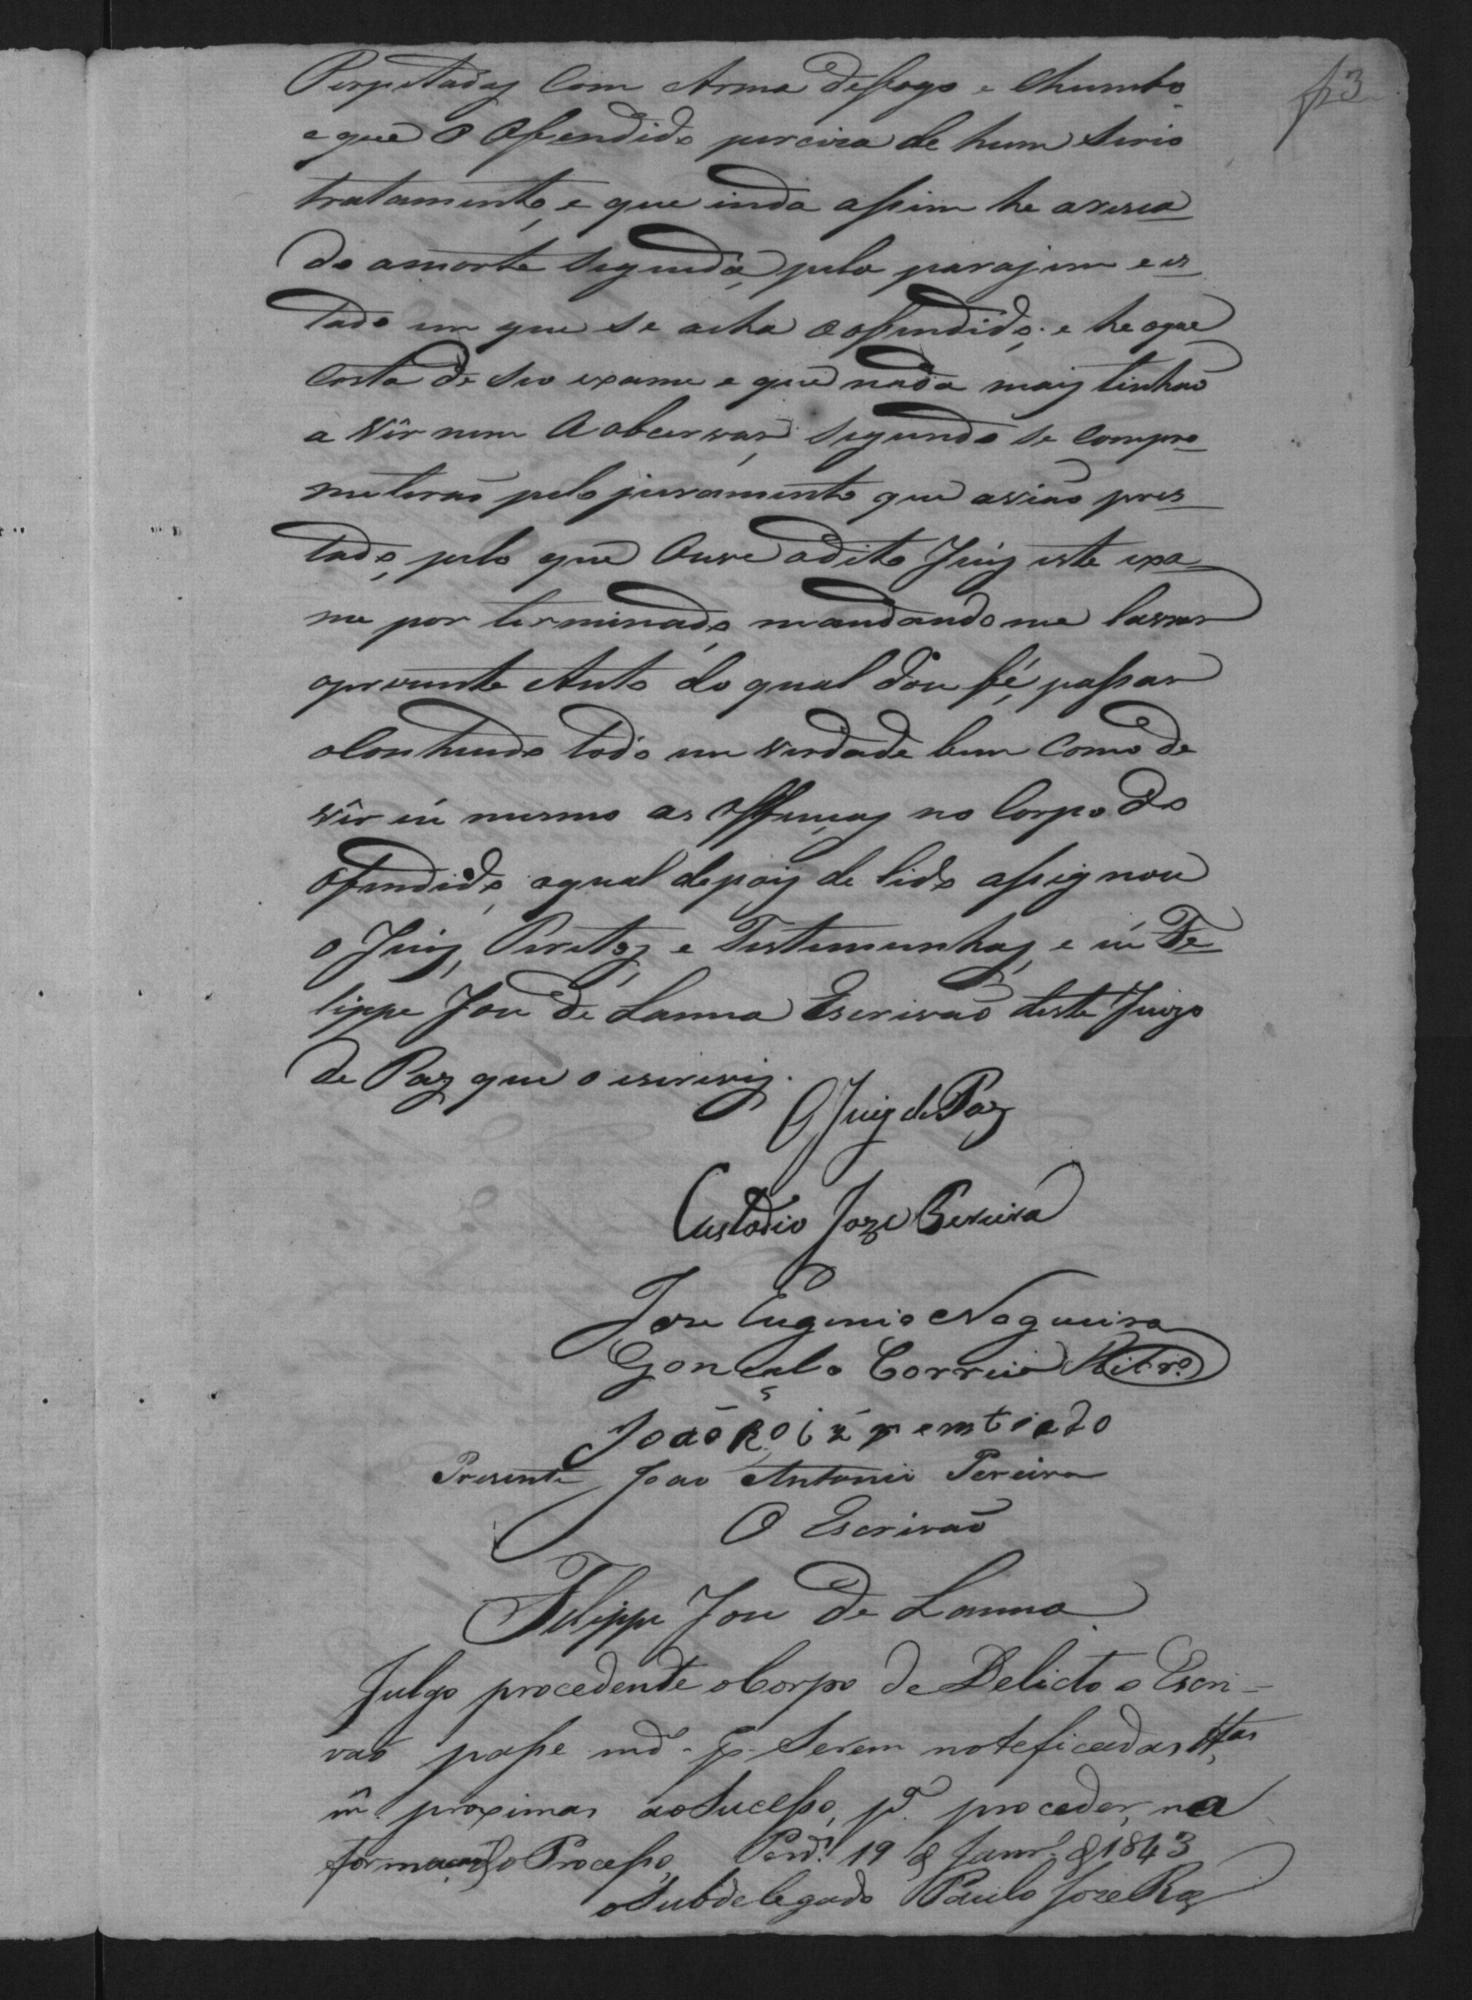 f 3
Perpetadas Com Arma defogo e Chumbo
e que o Ofendido perciza de hum Serio
tratamento, e que inda assim he arisca_
do amorte Segundo, pela parajem e es_
tado em que se acha o ofendido; e he oque
Costa de seo exame e que nada mais tinhaõ
a Vêr nem A obcervar, segundo se Compro_
meteraõ pelo juramento que aviaõ pres_
tado, pelo que Ouve odito Juiz este exa_
me por terminado, mandando me lavrar
oprezente Auto do qual dou fé, passar
oContheudo todo em verdade bem Como de
vêr eu mesmo as Offenças no Corpo do
Ofendido, oqual depois de lido assignou
o Juiz, Peritos, e Testemunhas, e eu Fe_
lippe Joze de Lanna Escrivaõ deste Juizo
de Paz que o escrivij.
O Juiz de Paz
Custodio Joze Pereira
Joze Eugenio Nogueira
Gonçalo Correia Ribrº
Joaõ
Prezente Joaõ Antonio Pereira
O Escrivaõ
Felippe Joze de Lanna
Julgo procedente oCorpo de Delicto o Escri-
vaõ passe md.º pª. Serem noteficadas ttas
m proximas aoSucesso, pª. proceder, na
formação do Processo, 19 de Janrº. de 1843
oSubdelegado Paulo Joze